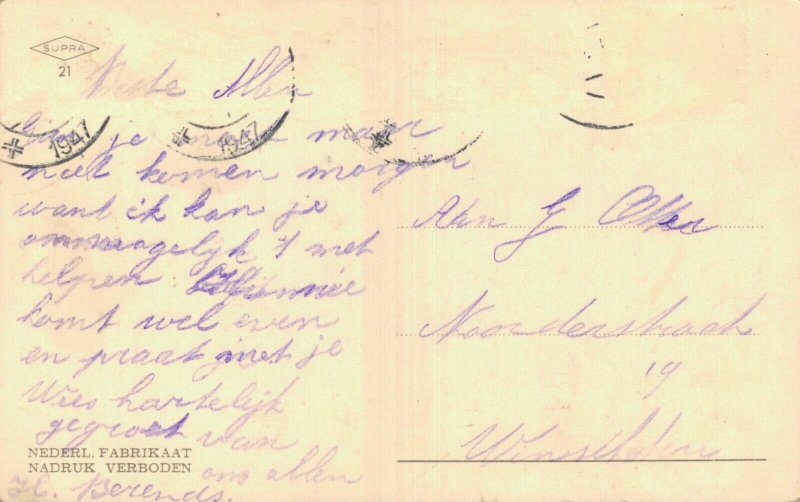 SUPRA
21
Beste Allen
1947
1947
je man maar
niet komen morgen
want ik kan je
onmoogelijk met
helpen. Winnie
komt wel even
en praat met je
Wees hartelijk
gegroet van
ons allen
H. Berends.
NEDERL. FABRIKAAT
NADRUK VERBODEN
Aan G Otter
Noorderstraat
19
Winschoten